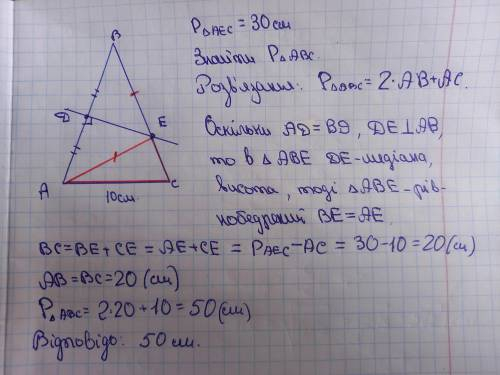 P△AEC = 30 см
Знайти P△ABC.
Розв'язання: P△ABC = 2·AB+AC.
Оскільки AD=BD, DE⊥AB,
то в △ABE DE-медіана,
висота, тоді △ABE-рів-
нобедрений BE=AE.
B
D
E
A
C
10см
BC=BE+CE=AE+CE=PAEC-AC=30-10=20(см)
AB=BC=20(см)
P△ABC=2·20+10=50(см)
Відповідь: 50 см.